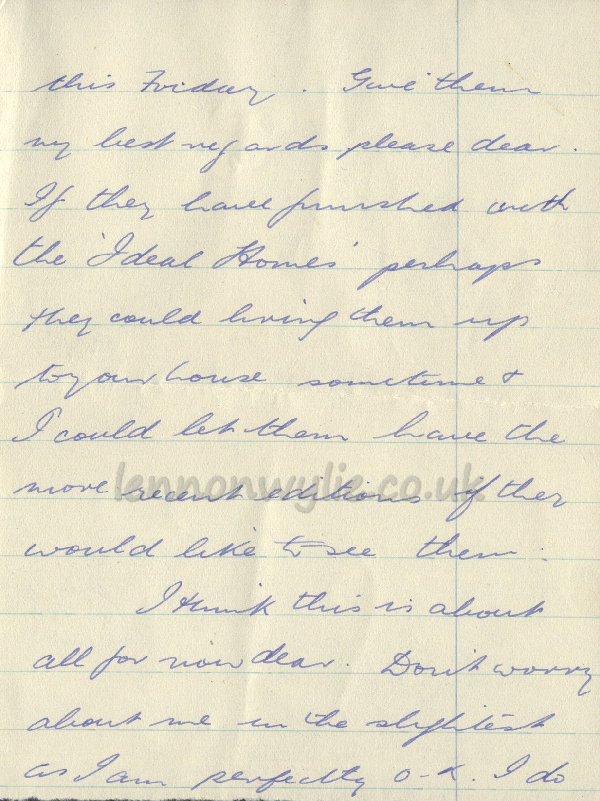 this Friday. Give them
my best regards please dear.
If they have finished with
the 'Ideal Homes' perhaps
they could bring them up
to your house sometime &
I could let them have the
more recent editions if they
lennonwylie.co.uk
would like to see them.
I think this is about
all for now dear. Don't worry
about me in the slightest
as I am perfectly O-K. I do